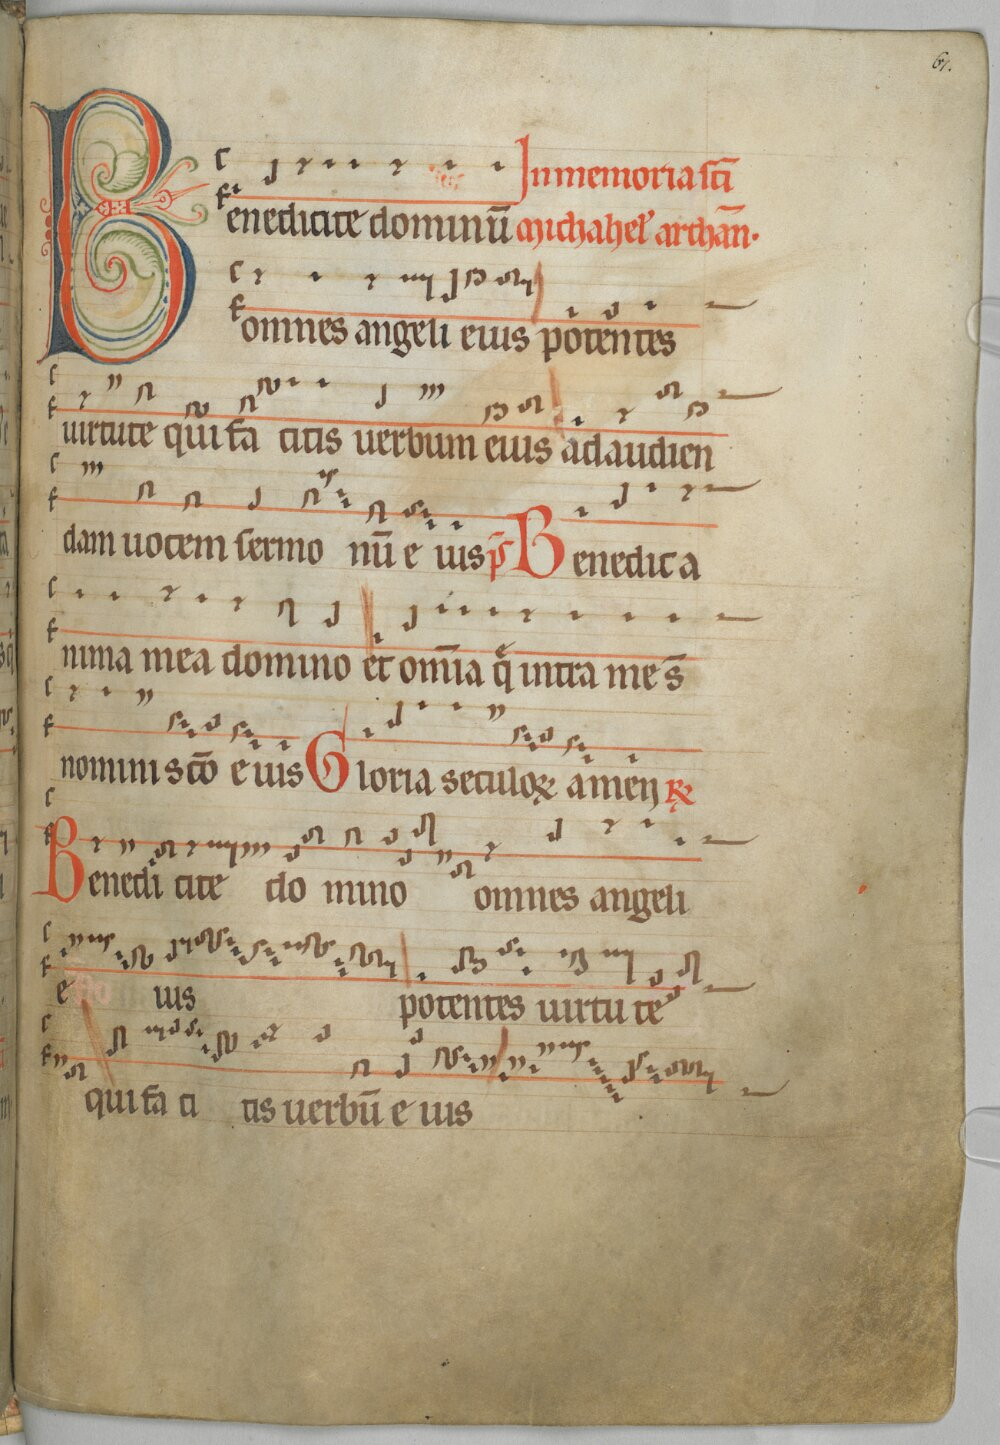 61.
In memoria scī
Benedicite dominū michahel' archān.
omnes angeli eius potentes
uirtute qui fa citis uerbum eius adaudien
dam uocem sermo nū e ius p̄s Benedic a
nima mea domino et om̄ia q̄ intra me s̄
nomini sc̄o eius Gloria seculoꝝ amen ꝶ
Benedi cite do mino omnes angeli
e ius potentes uirtu te
qui fa ci tis uerbū e ius